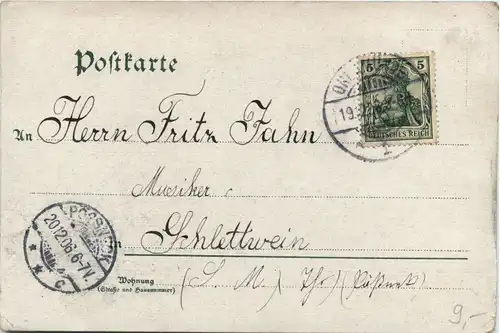 Postkarte
5 5
DEUTSCHES REICH
19.
1
An Herrn Fritz Jahn
Musiker
in Schlettwein
PÖSSNECK
20.12.06.6-7V.
* * C
Wohnung
(Straße und Hausnummer)
(S. M.) Thr. (Pößneck)
9,-